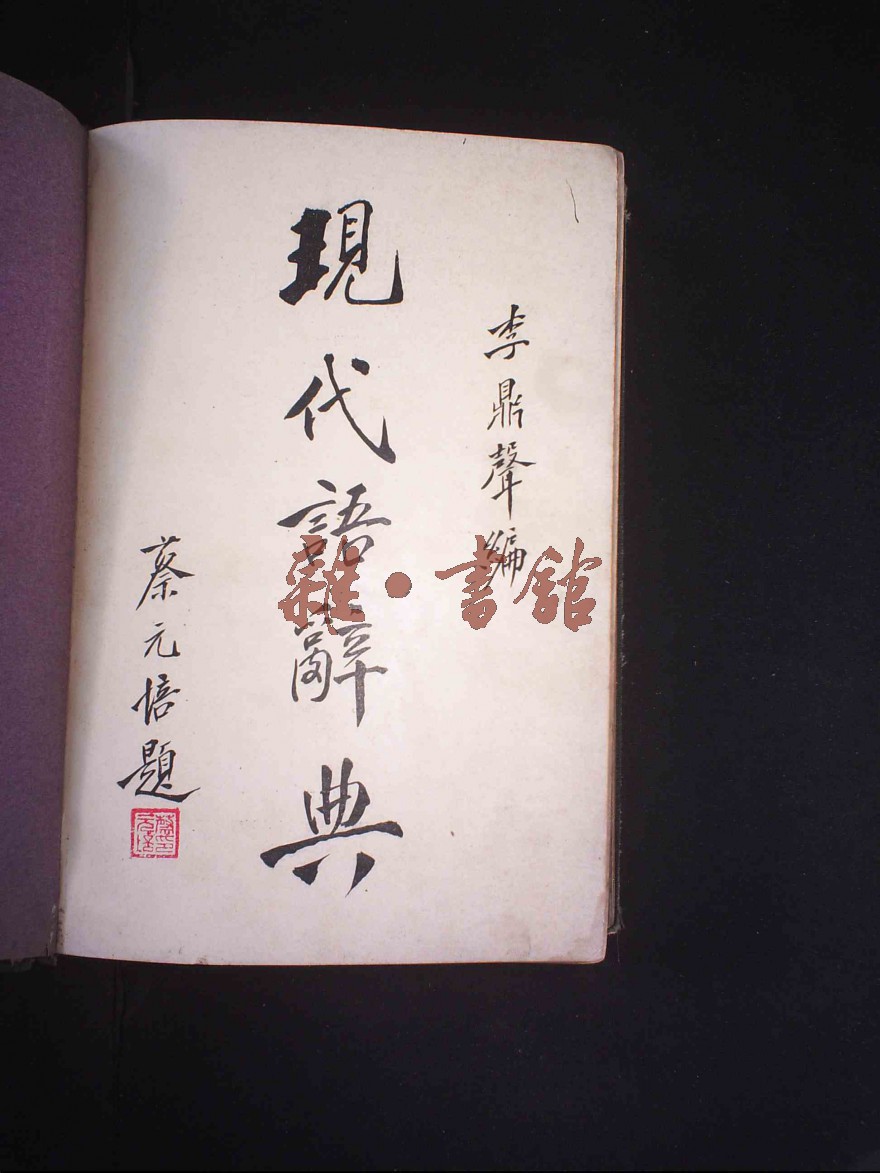 李鼎聲編
現代語辭典
蔡元培題
雜·書館